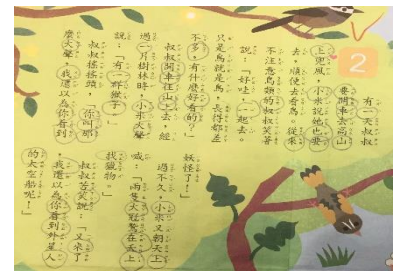 2
有一天叔叔
要開車去高山
上兜風，小米說她也要
去，順便去看鳥。從來
不注意鳥類的叔叔笑著
說：「好哇，一起去。
只是鳥就是鳥，長得都差
不多，有什麼好看的？」
叔叔開車往山上去，經
過一片樹林時，小米大聲
說：「有一群猴子。」
叔叔搖搖頭：「你叫那
麼大聲，我還以為你看到
妖怪了！」
過不久，小米又朝天上
喊：「兩隻大冠鷲在天上
找獵物。」
叔叔苦笑說：「又來了
，我還以為你看到外星人
的太空船呢！」